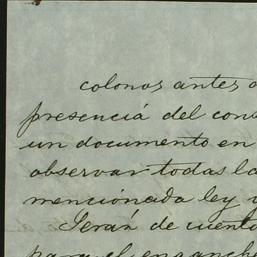 colonos antes
presenciá del con
un documento en
observar todas la
mencionada ley
Serán de cuento
para el enganche